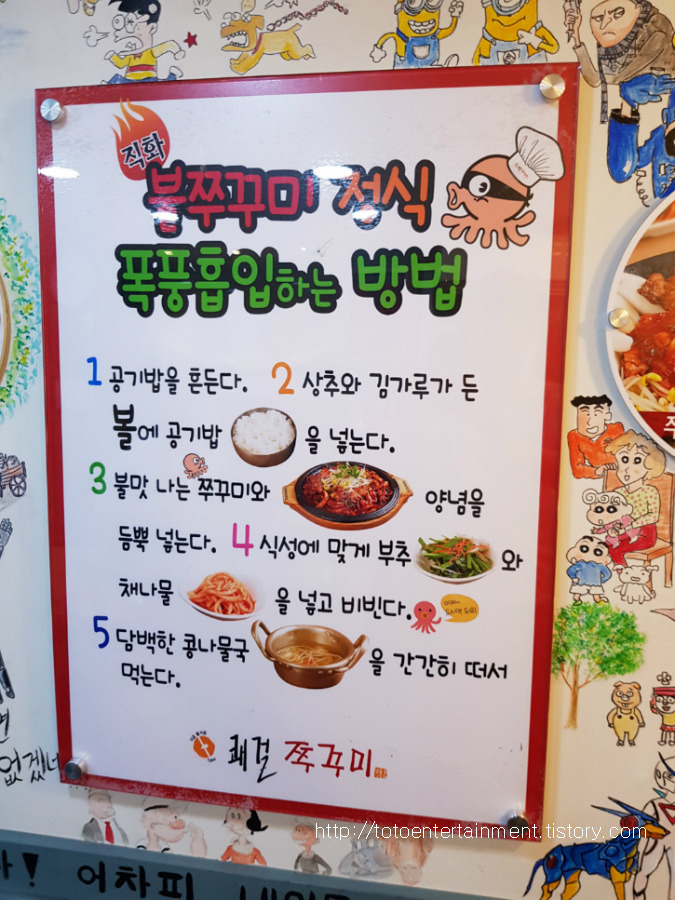 직화
불쭈꾸미 정식
폭풍흡입하는 방법
1 공기밥을 흔든다. 2 상추와 김가루가 든
볼에 공기밥 을 넣는다.
3 불맛 나는 쭈꾸미와 양념을
듬뿍 넣는다. 4 식성에 맞게 부추 와
채나물 을 넣고 비빈다.
5 담백한 콩나물국 을 간간히 떠서
먹는다.
쾌걸 쭈꾸미
없겠너
! 어차피
http://totoentertainment.tistory.com